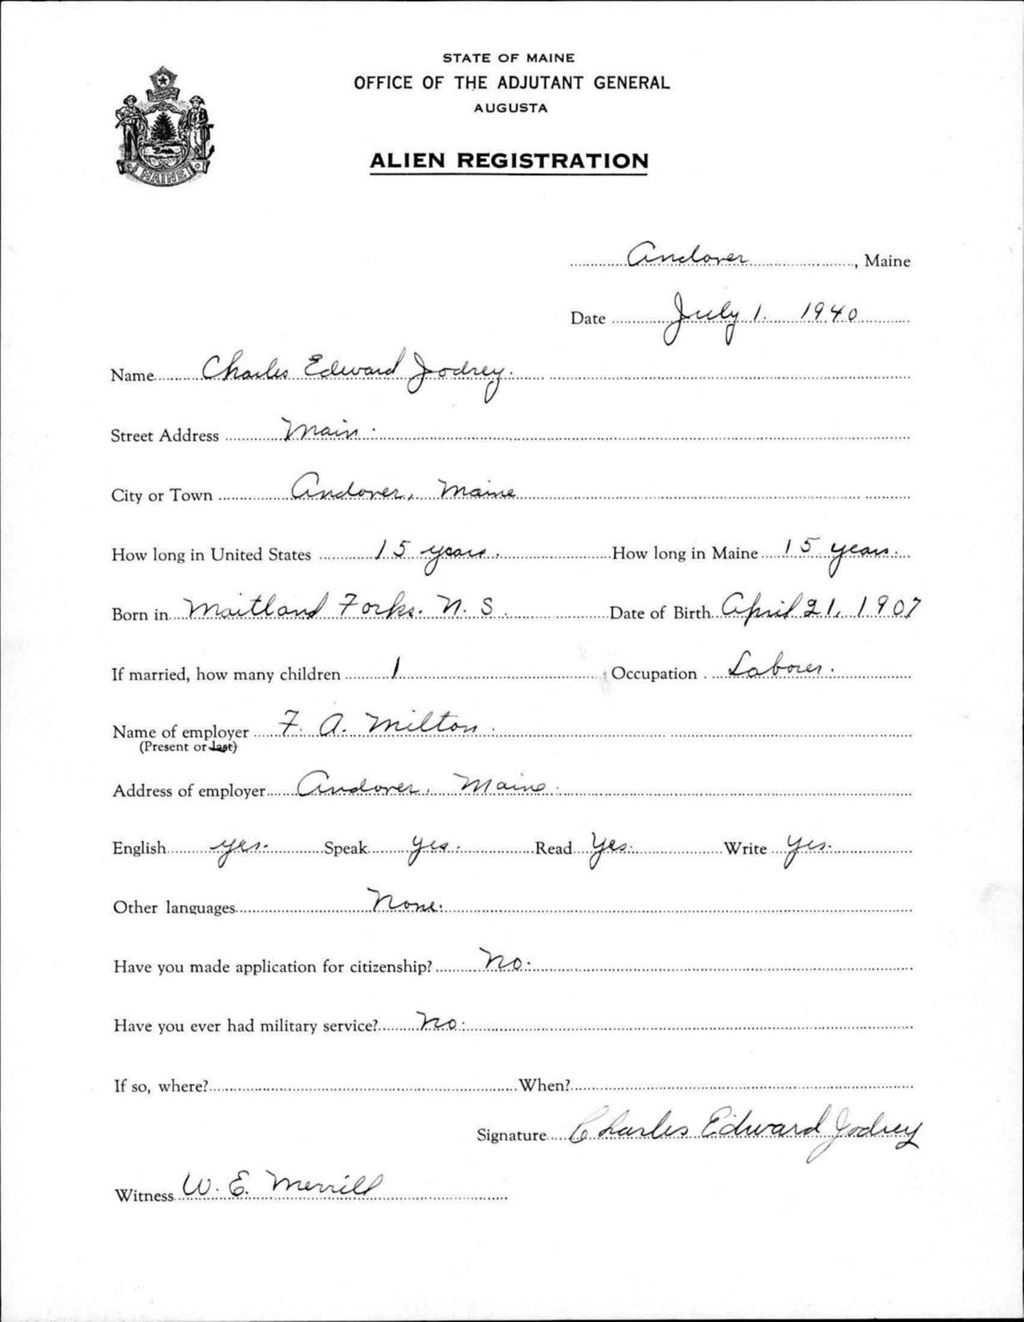 STATE OF MAINE
OFFICE OF THE ADJUTANT GENERAL
AUGUSTA
ALIEN REGISTRATION
MAINE
Andover, Maine
Date July 1. 1940
Name Charles Edward Jodrey.
Street Address Main.
City or Town Andover, Maine
How long in United States 15 years. How long in Maine 15 years.
Born in Maitland Forks. N. S. Date of Birth April 21, 1907
If married, how many children 1 Occupation Laborer.
Name of employer F. A. Milton.
(Present or last)
Address of employer Andover, Maine.
English yes. Speak yes. Read Yes. Write Yes.
Other languages None.
Have you made application for citizenship? No.
Have you ever had military service? No.
If so, where? When?
Signature Charles Edward Jodrey
Witness W. E. Merrill